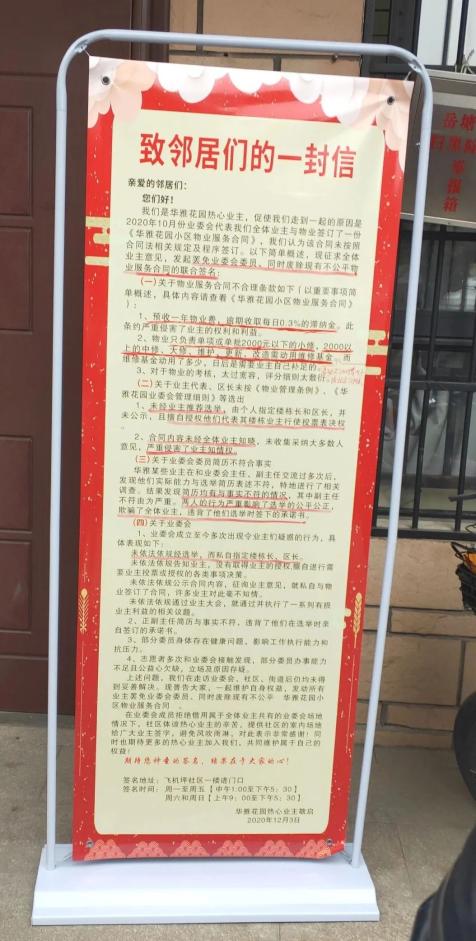 致邻居们的一封信
亲爱的邻居们:
您们好!
我们是华雅花园热心业主,促使我们走到一起的原因是
2020年10月份业委会代表我们全体业主与物业签订了一份
《华雅花园小区物业服务合同》,我们认为该合同未按照
合同法相关规定及程序签订。以下简单概述,现征求全体
业主意见,发起罢免业委会委员,同时废除现有不公平物
业服务合同的联合签名:
(一)关于物业服务合同不合理条款如下(以重要事项简
单概述,具体内容请查看《华雅花园小区物业服务合同》
):
1、预收一年物业费,逾期收取每日0.3%的滞纳金。此
条约严重侵害了业主的权利和利益。
2、物业只负责单项或单批2000元以下的小修,2000以
上的中修、大修、维护、更新、改造需动用维修基金。而
维修基金动用了多少,日后是需要业主自己补足的
3、对于物业的考核,太过宽容,评分细则太敷衍
(二)关于业主代表、区长未按《物业管理条例》、《华
雅花园业委会管理细则》等选出
1、未经业主推荐选举,由个人指定楼栋长和区长,并
未公示,且擅自授权他们代表其楼栋业主行使投票表决权
。
2、合同内容未经全体业主知晓,未收集采纳大多数人
意见,严重侵害了业主知情权。
(三)关于业委会委员简历不符合事实
华雅某些业主在和业委会主任、副主任交流过多次后,
发现他们实际能力与选举简历表述不符,特地进行了相关
调查。结果发现简历均有与事实不符的情况,其中副主任
不符由为严重。两人的行为严重影响了选举的公平公正,
欺骗了全体业主,违背了他们选举时签下的承诺书。
(四)关于业委会
1、业委会成立至今多次出现令业主们疑惑的行为,具
体表现如下:
未依法依规经选举,而私自指定楼栋长、区长。
未依法依规告知业主,没有取得业主的授权,擅自进行需
要业主投票或授权的各类事项决策。
未依法依规公示合同内容,征询业主意见,就私自与物
业签订了合同,许多业主对此毫不知情。
未依法依规通过业主大会,就通过并执行了一系列有损
业主利益的相关议题。
2、正副主任简历与事实不符,违背了他们在选举时亲
自签订的承诺书。
3、部分委员身体存在健康问题,影响工作执行能力和
抗压力。
4、志愿者多次和业委会接触发现,部分委员办事能力
不足且公益心欠缺,立场及原因存疑。
上述问题,我们在走访业委会、社区、街道后仍均未得
到妥善解决。现普告大家,一起维护自身权益,发动所有
业主罢免业委会委员、同时废除现有不公平 华雅花园小
区物业服务合同 。
在业委会成员拒绝借用属于全体业主共有的业委会场地
情况下,社区体谅热心业主的辛苦。提供社区的室内场地
给广大业主签字,避免风吹雨淋。对此表示非常感谢!同
时也期待更多的热心业主加入我们,共同维护属于自己的
权益!
期待您神童的签名,结果在乎大家的心!
签名地址:飞机坪社区一楼进门口
签名时间:周一至周五【中午1:00至下午5:30】
周六和周日【上午9:00至下午5:30】
华雅花园热心业主敬启
2020年12月3日
岳塘
扫黑除
举报箱